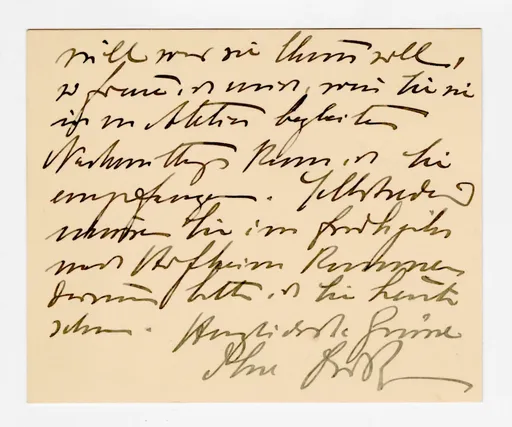 will was sie thun soll,
so freue ich mich, wenn Sie sie
ins Atelier begleiten
Nachmittags kann ich Sie
empfangen. Selbstredend
müssen Sie im Frühjahr
nach Hofheim kommen
darum bitte ich Sie heute
schon. Herzlichste Grüsse
Ihre